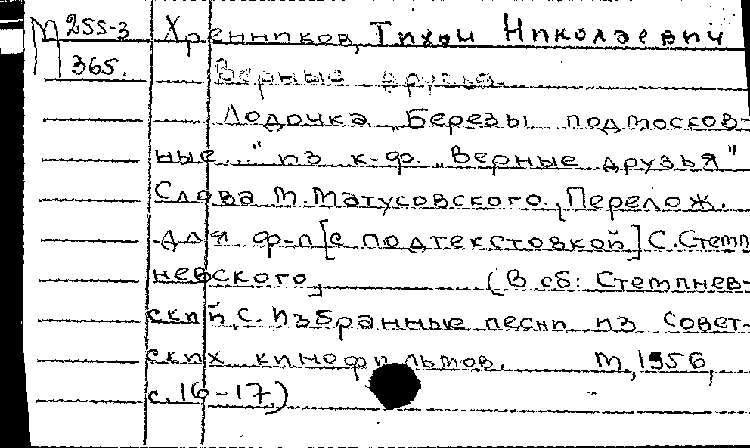 М 255-3 Хренников, Тихон Николаевич
365. Верные друзья.
Лодочка „Березы подмосков-
ные..." из к-ф. „Верные друзья"
Слова М. Матусовского. Перелож.
для ф-п [с подтекстовкой] С. Стемп
невского, (В сб: Стемпнев-
ский, С. Избранные песни из совет-
ских кинофильмов. М, 1956,
с. 16-17.)